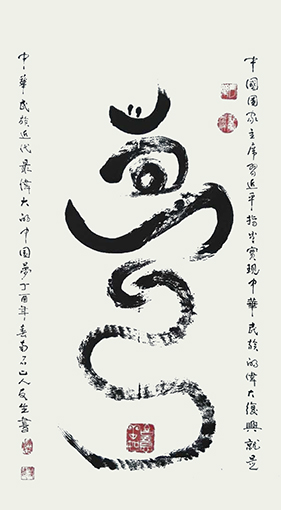 中國國家主席習近平指出實現中華民族的偉大復興就是
夢
中華民族近代最偉大的中国夢丁酉年春南石山人友生書